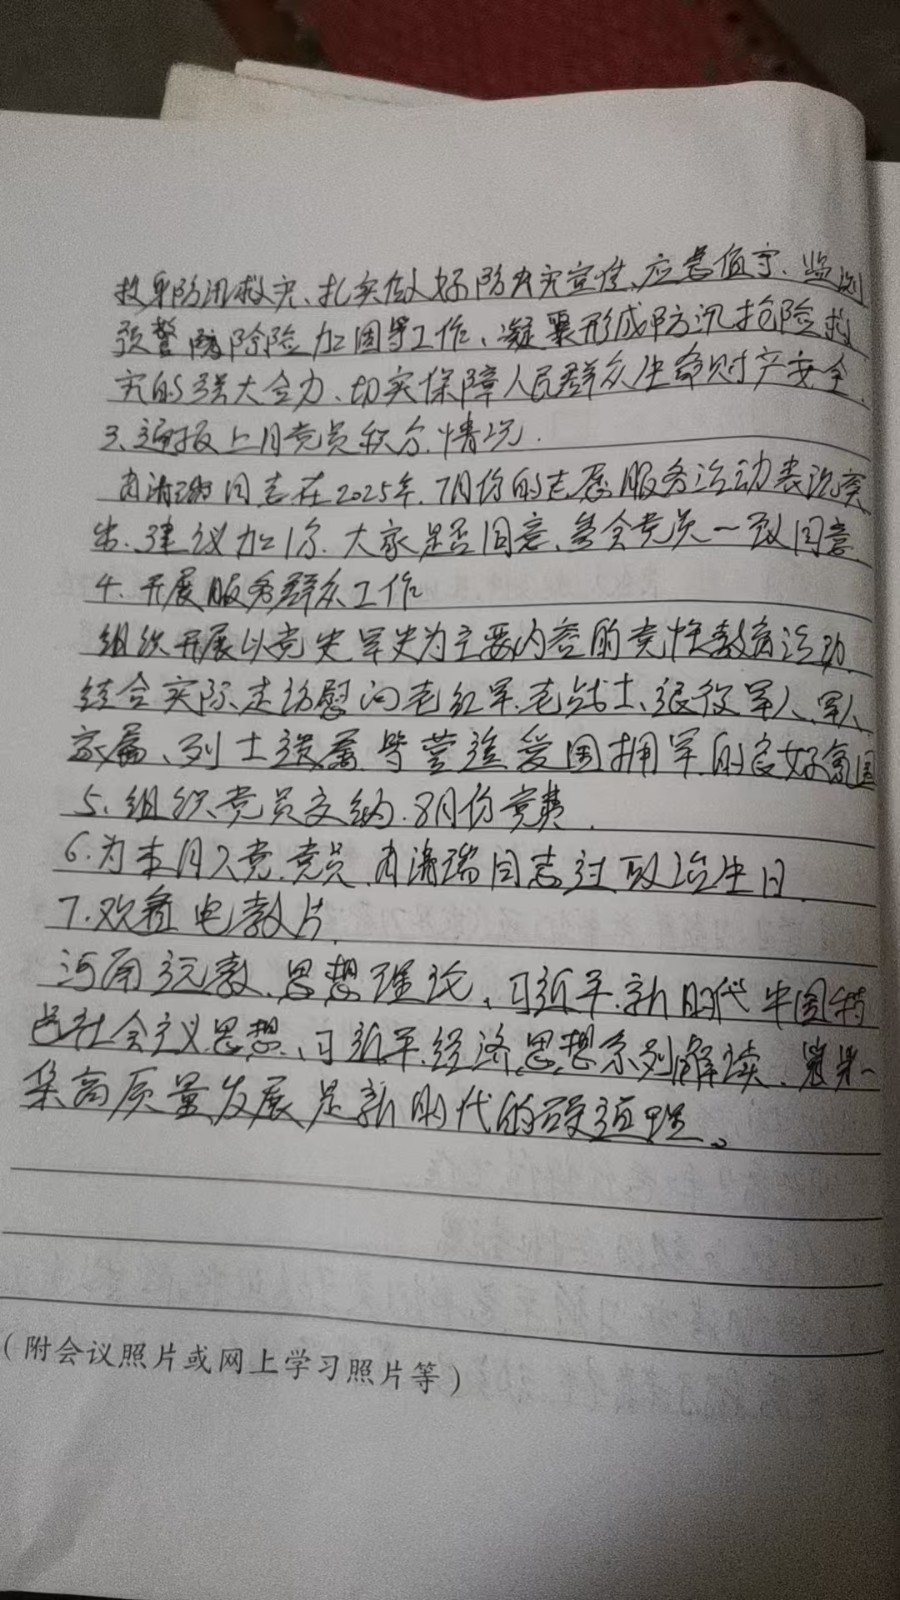 投身防汛救灾、扎实做好防灾宣传、应急值守、监测
预警、除险加固等工作、凝聚形成防汛抢险救
灾的强大合力、切实保障人民群众生命财产安全.
3、通报上月党员积分情况.
肖清瑞同志在2025年.7月份的志愿服务活动表现突
出.建议加1分.大家是否同意、参会党员一致同意
4.开展服务群众工作
组织开展以党史军史为主要内容的党性教育活动.
结合实际走访慰问老红军.老战士、退役军人、军人
家属、烈士遗属等营造爱国拥军的良好氛围
5.组织党员交纳.8月份党费.
6.为本月入党党员.肖清瑞同志过政治生日
7.观看电教片.
河南远教.思想理论、习近平.新时代中国特
色社会主义思想、习近平.经济思想系列解读.第一
集高质量发展是新时代的硬道理。
(附会议照片或网上学习照片等)